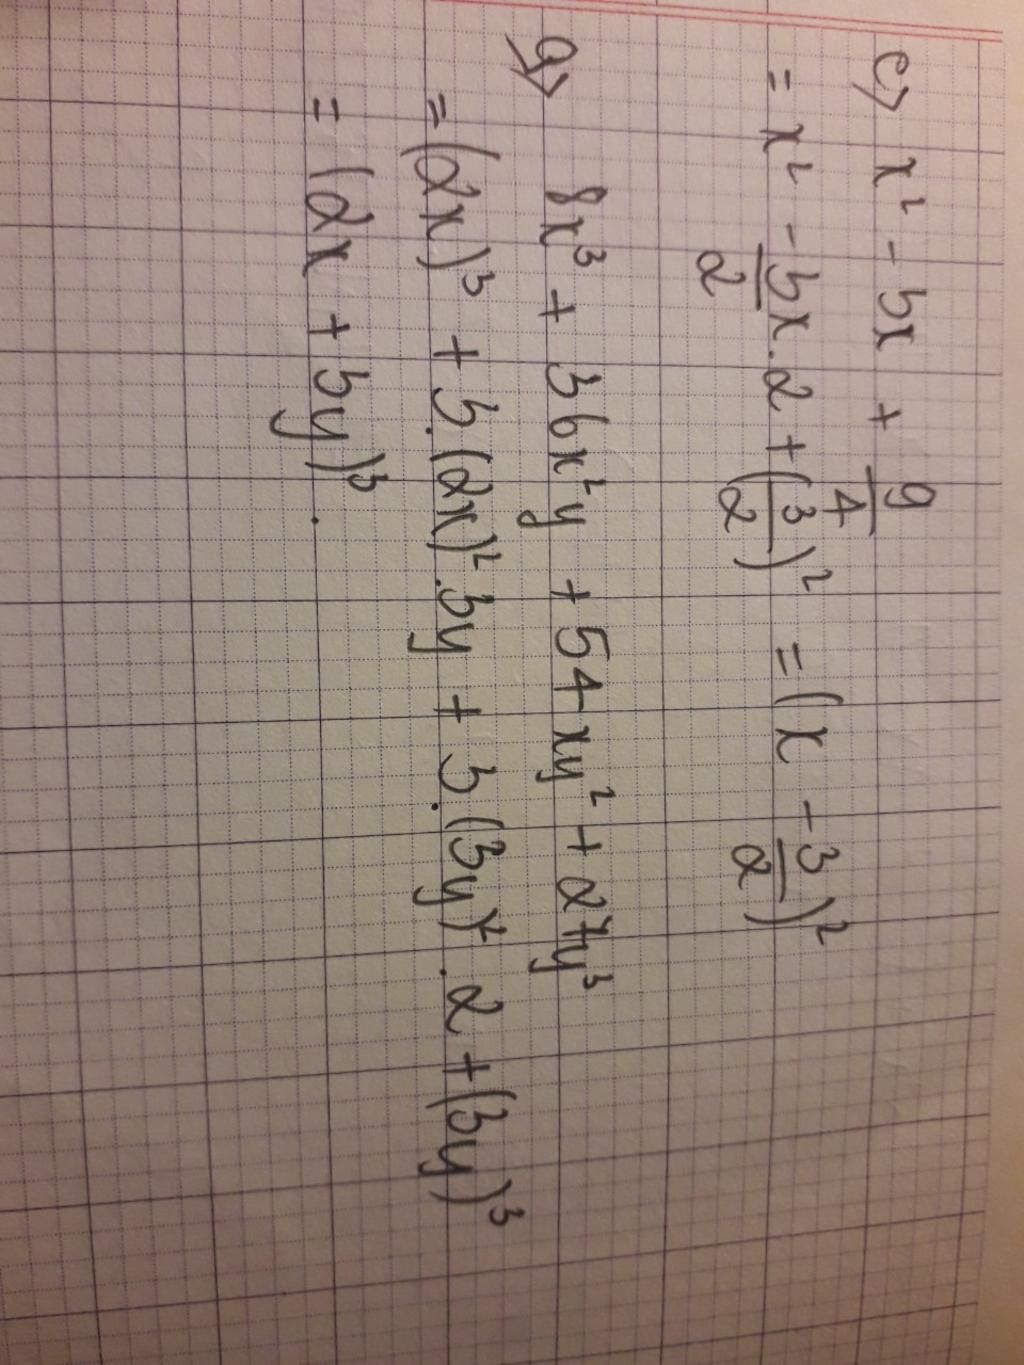 c) x² - 3x + 9/4
= x² - 3/2 x . 2 + (3/2)² = (x - 3/2)²
g) 8x³ + 36x²y + 54xy² + 27y³
= (2x)³ + 3.(2x)².3y + 3.(3y)².2 + (3y)³
= (2x + 3y)³.